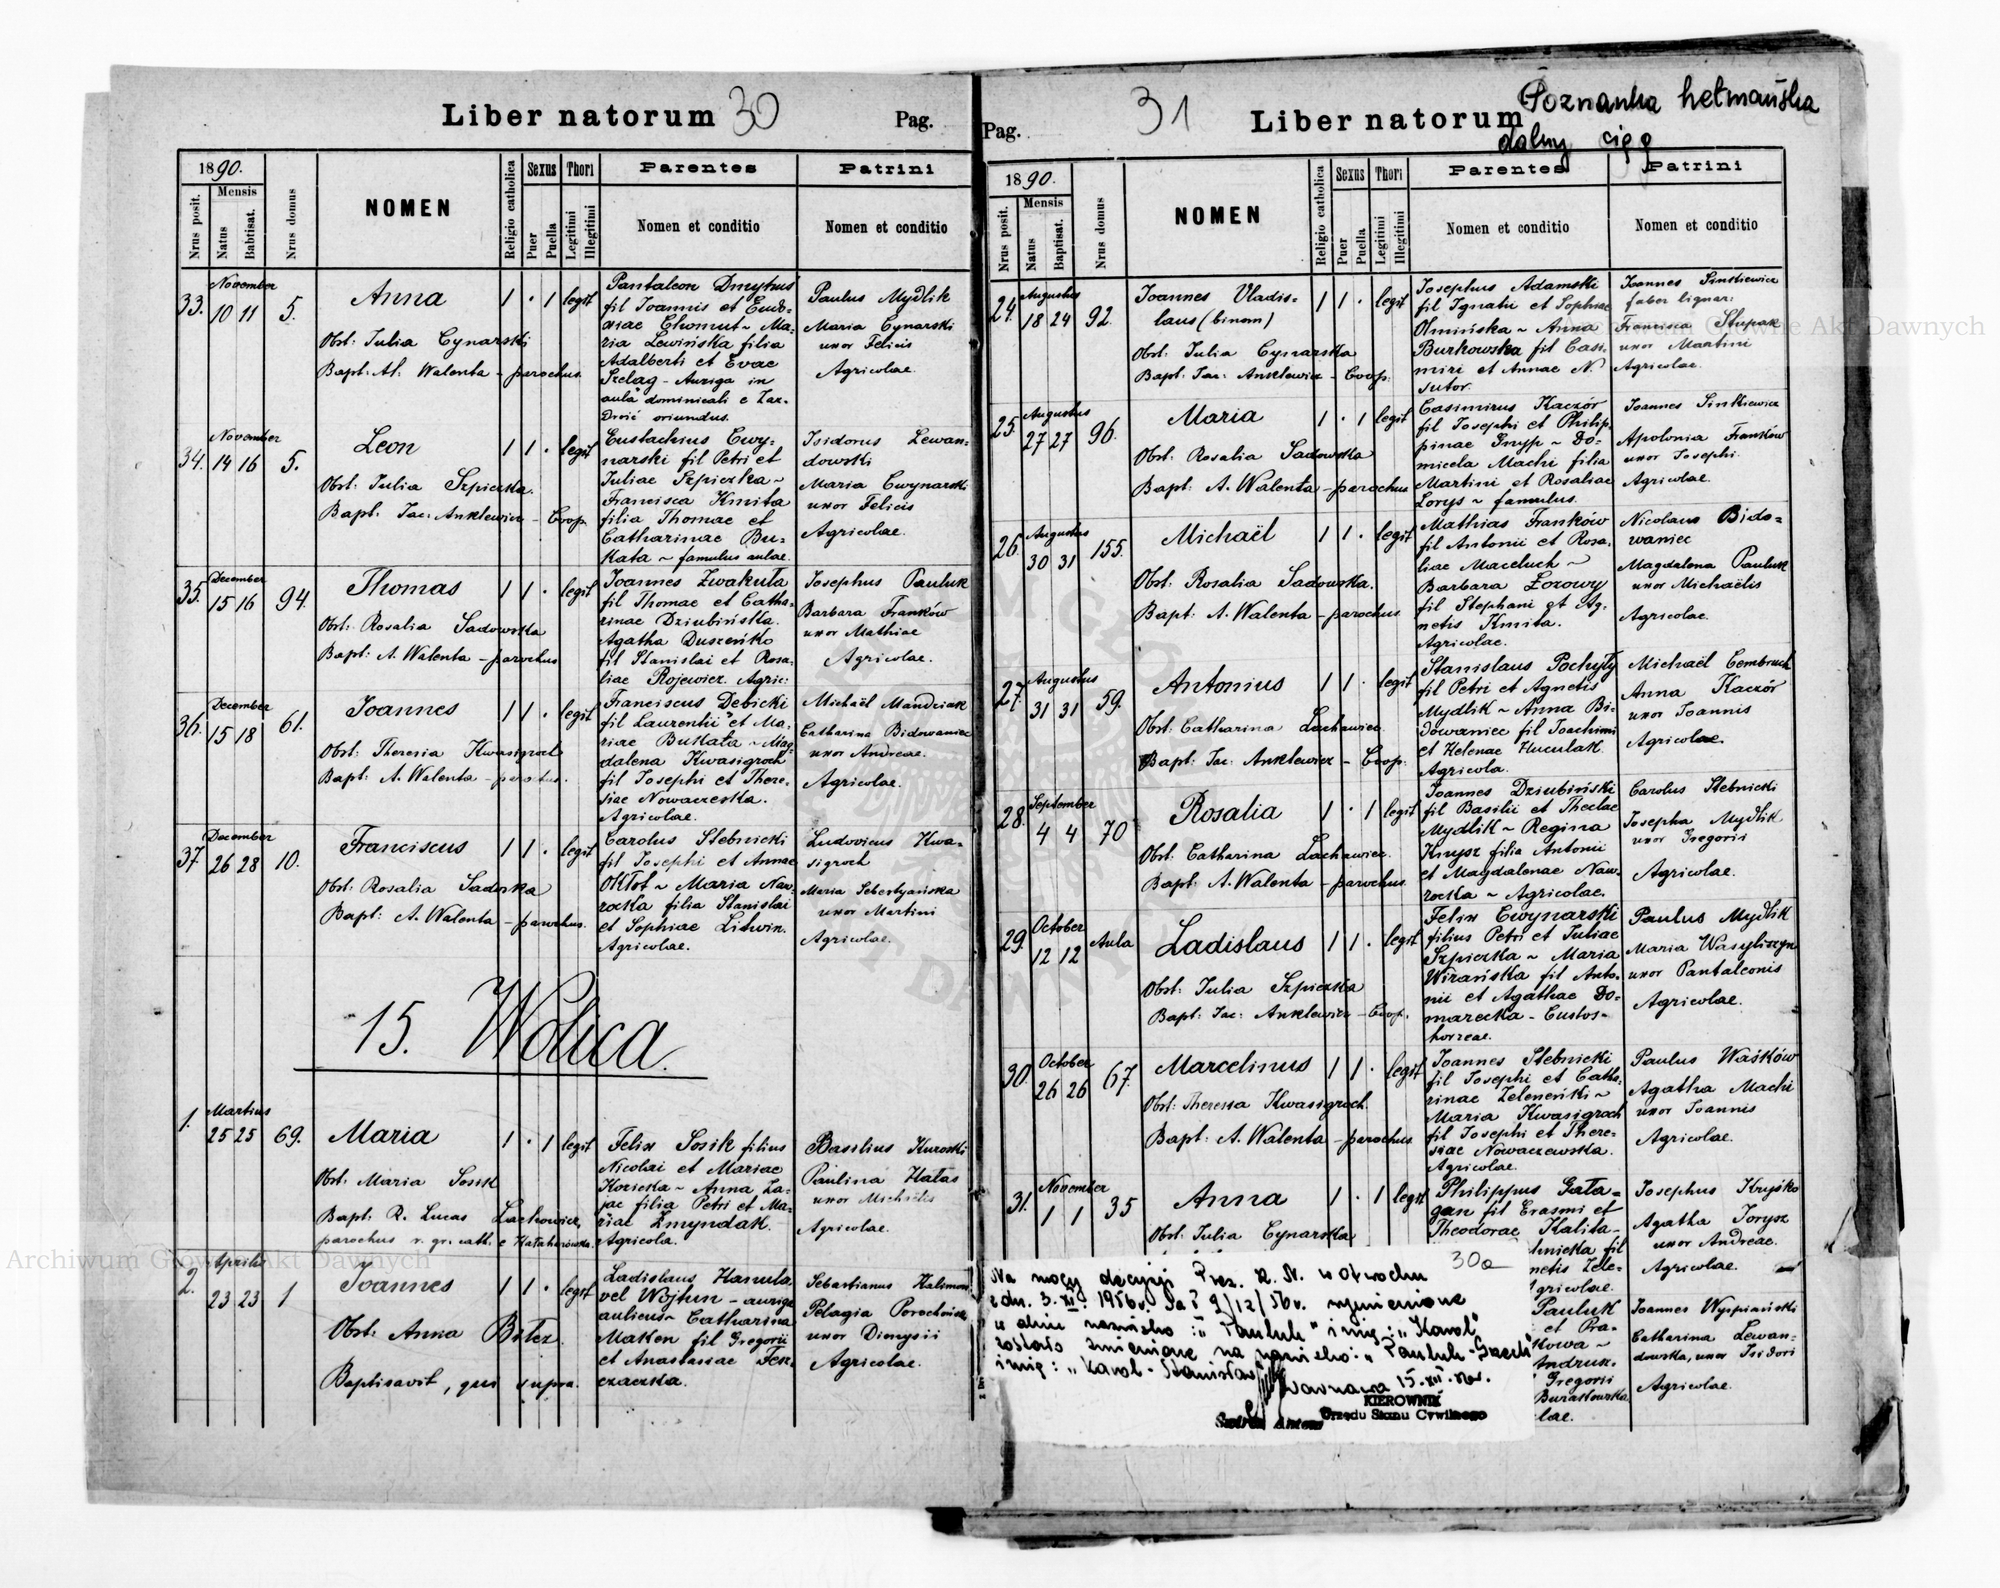 Liber natorum 30 Pag.
1890.
Nrus posit.
Mensis
Natus
Babtisat.
Nrus domus
NOMEN
Religio catholica
Sexus
Puer
Puella
Thori
Legitimi
Illegitimi
Parentes
Nomen et conditio
Patrini
Nomen et conditio
33. November 10 11 5.
Anna
Obst: Julia Cynarski
Bapt: Al. Walenta - parochus
1 . 1 legit
Pantaleon Dmytrus
fil Joannis et Eudo-
xiae Chomut ~ Ma-
ria Lewińska filia
Adalberti et Evae
Szeląg - Auriga in
aula dominicali e Zaz-
Drość oriundus.
Paulus Mydlik
Maria Cynarski
uxor Felicis
Agricolae.
34. November 14 16 5.
Leon
Obst: Julia Szpiczka.
Bapt. Jac: Anklewicz - Coop.
1 1 . legit
Eustachius Cwy-
narski fil Petri et
Juliae Szpiczka ~
Francisca Kmita
filia Thomae et
Catharinae Bu-
kata ~ famulus aulae.
Isidorus Lewan-
dowski
Maria Cwynarski
uxor Felicis
Agricolae.
35. December 15 16 94.
Thomas
Obst: Rosalia Sadowska
Bapt: A. Walenta - parochus
1 1 . legit
Joannes Zwakuła
fil Thomae et Catha-
rinae Dziubińska.
Agatha Duszeńko
fil Stanislai et Rosa-
liae Rojewicz Agric:
Josephus Pauluk
Barbara Franków
uxor Mathiae
Agricolae.
36. December 15 18 61.
Joannes
Obst: Theresia Kwasigroch
Bapt: A. Walenta - parochus.
1 1 . legit
Franciscus Debicki
fil Laurentii et Ma-
riae Bukata ~ Mag-
dalena Kwasigroch
fil Josephi et There-
siae Nowaczeska.
Agricolae.
Michaël Mandziak
Catharina Bidowaniec
uxor Andreae.
Agricolae.
37. December 26 28 10.
Franciscus
Obst: Rosalia Sadoska
Bapt: A. Walenta - parochus.
1 1 . legit
Carolus Stebnicki
fil Josephi et Annae
Okłot ~ Maria Naw-
rocka filia Stanislai
et Sophiae Litwin.
Agricolae.
Ludovicus Kwa-
sigroch
Maria Sebestyańska
uxor Martini
Agricolae.
15. Wolica.
1. Martius 25 25 69.
Maria
Obst: Maria Sosik
Bapt: R. Lucas Lachowicz,
parochus r. gr. cath. e
1 . 1 legit
Felix Sosik filius
Nicolai et Mariae
Kozicka ~ Anna Za-
jac filia Petri et Ma-
riae Zmyndak.
Agricola.
Basilius Kuroski
Paulina Hałas
uxor Michaëlis
Agricolae.
2. Aprilis 23 23 1
Joannes
Obst: Anna Bilez.
Baptisavit, qui supra.
1 1 . legit
Ladislaus Hamula
vel Wojtun - auriga
aulicus ~ Catharina
Maken fil Gregorii
et Anastasiae Fesz-
czaczka.
Sebastianus
Pelagia
uxor Dionysii
Agricolae.
Pag. 31 Liber natorum
Poznanka hetmańska
dalszy ciąg
1890.
Nrus posit.
Mensis
Natus
Baptisat.
Nrus domus
NOMEN
Religio catholica
Sexus
Puer
Puella
Thori
Legitimi
Illegitimi
Parentes
Nomen et conditio
Patrini
Nomen et conditio
24. Augustus 18 24 92.
Joannes Vladis-
laus (binom)
Obst: Julia Cynarska
Bapt: Jac: Anklewicz - Coop.
1 1 . legit
Josephus Adamski
fil Ignatii et Sophiae
Olmińska ~ Anna
Burkowska fil Casi-
miri et Annae N.
Sutor.
Joannes Sinkiewicz
faber lignar:
Francisca Stupak
uxor Martini
Agricolae.
25. Augustus 27 27 96.
Maria
Obst: Rosalia Sadowska
Bapt: A. Walenta - parochus
1 . 1 legit
Casimirus Kaczór
fil Josephi et Philip-
pinae Gnyp ~ Do-
micela Machi filia
Martini et Rosaliae
Lorys ~ famulus.
Joannes Sinkiewicz
Apolonia Franków
uxor Josephi
Agricolae.
26. Augustus 30 31 155.
Michaël
Obst: Rosalia Sadowska.
Bapt: A. Walenta - parochus
1 1 . legit
Mathias Franków
fil Antonii et Rosa-
liae Maceluch ~
Barbara Łozowy
fil Stephani et Ag-
netis Kmita.
Agricolae.
Nicolaus Bido-
waniec
Magdalena Pauluk
uxor Michaëlis
Agricolae.
27. Augustus 31 31 59.
Antonius
Obst: Catharina Lachawiec.
Bapt: Jac: Anklewicz - Coop.
1 1 . legit
Stanislaus Pochyły
fil Petri et Agnetis
Mydlik ~ Anna Bi-
dowaniec fil Joachimi
et Helenae Huculak.
Agricola.
Michaël Cembruch
Anna Kaczór
uxor Joannis
Agricolae.
28. September 4 4 70
Rosalia
Obst: Catharina Lachawiec.
Bapt: A. Walenta - parochus
1 . 1 legit
Joannes Dziubiński
fil Basilii et Theclae
Mydlik ~ Regina
Knysz filia Antonii
et Magdalenae Naw-
rocka ~ Agricolae.
Carolus Stebnicki
Josepha Mydlik
uxor Gregorii
Agricolae.
29. October 12 12 Aula
Ladislaus
Obst: Julia Szpiczka
Bapt: Jac: Anklewicz - Coop.
1 1 . legit
Felix Cwynarski
filius Petri et Juliae
Szpiczka ~ Maria
Wirańska fil Anto-
nii et Agathae Do-
marecka - Custos-
horreae.
Paulus Mydlik
Maria Wasyliszyn
uxor Pantaleonis
Agricolae.
30. October 26 26 67.
Marcelinus
Obst: Theresia Kwasigroch
Bapt: A. Walenta - parochus
1 1 . legit
Joannes Stebnicki
fil Josephi et Catha-
rinae Zeleneńki ~
Maria Kwasigroch
fil Josephi et There-
siae Nowaczewska.
Agricolae.
Paulus Waśków
Agatha Machi
uxor Joannis
Agricolae.
31. November 1 1 35
Anna
Obst: Julia Cynarska
1 . 1 legit
Philippus Gata-
gan fil Erasmi et
Theodorae Kalita-
lnicka fil
netis Zele-
Agricolae.
Josephus Kryśko
Agatha Jorysz
uxor Andreae.
Agricolae.
Pauluk
et Pra-
kowa ~
Andrus-
Gregorii
Burakowska
lae.
Joannes Wyspiański
Catharina Lewan-
dowska, uxor Isidori
Agricolae.
30a
Na mocy decyzji Prez. R. N. w Otwocku
z dn. 3.XI. 1956r. Sa I 9/12/56r. wymienione
w akcie nazwisko: "Pauluk" i imię: "Karol"
zostało zmienione na nazwisko: "Pauluk-Grech"
i imię: "Karol-Stanisław"
Warszawa 15.XII.56r.
KIEROWNIK
Urzędu Stanu Cywilnego
Archiwum Główne Akt Dawnych
Archiwum Główne Akt Dawnych